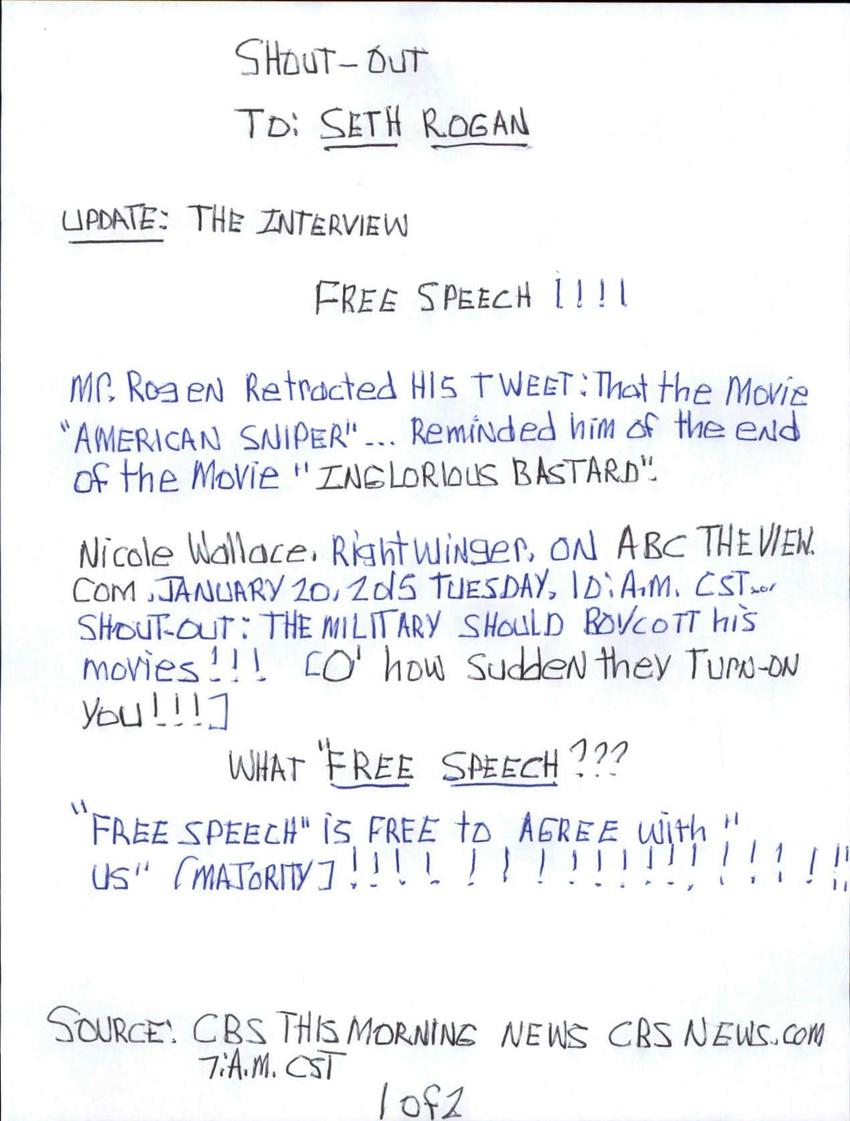 SHOUT-OUT
TO: SETH ROGAN
UPDATE: THE INTERVIEW
FREE SPEECH !!!!
Mr. Rogen Retracted HIS TWEET: That the Movie
"AMERICAN SNIPER"... Reminded him of the end
of the Movie "INGLORIOUS BASTARD".
Nicole Wallace, Right Winger, ON ABC THEVIEW.
COM, JANUARY 20, 2015 TUESDAY, 10:A.M. CST...or
SHOUT-OUT: THE MILITARY SHOULD BOYCOTT his
movies!!! [O' how sudden they TURN-ON
you!!!]
WHAT "FREE SPEECH???
"FREE SPEECH" is FREE to AGREE with "
US" [MAJORITY]!!!! !!!!!!!!!!!!!!!
SOURCE: CBS THIS MORNING NEWS CBS NEWS.COM
7:A.M. CST
1 of 2